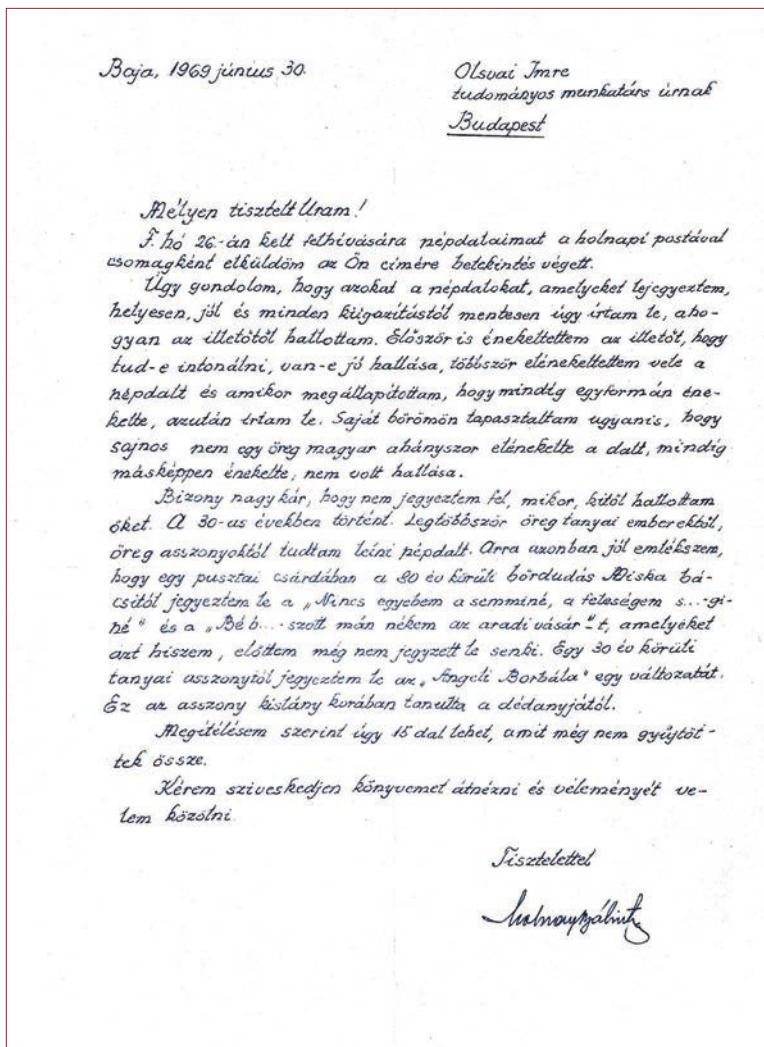 Baja, 1969 június 30.
Olsvai Imre
tudományos munkatárs úrnak
Budapest
Mélyen tisztelt Uram!
F. hó 26.-án kelt felhívására népdalaimat a holnapi postával
csomagként elküldöm az Ön címére betekintés végett.
Úgy gondolom, hogy azokat a népdalokat, amelyeket lejegyeztem,
helyesen, jól és minden kiigazítástól mentesen úgy írtam le, aho-
gyan az illetőtől hallottam. Először is énekeltettem az illetőt, hogy
tud-e intonálni, van-e jó hallása, többször elénekeltettem vele a
népdalt és amikor megállapítottam, hogy mindig egyformán éne-
kelte, azután írtam le. Saját bőrömön tapasztaltam ugyanis, hogy
sajnos nem egy öreg magyar ahányszor elénekelte a dalt, mindig
másképpen énekelte, nem volt hallása.
Bizony nagy kár, hogy nem jegyeztem fel, mikor, kitől hallottam
őket. A 30-as években történt. Legtöbbször öreg tanyai emberektől,
öreg asszonyoktól tudtam leírni népdalt. Arra azonban jól emlékszem,
hogy egy pusztai csárdában a 80 év körüli bőrdudás Miska bá-
csitól jegyeztem le a „Nincs egyebem a semminé, a feleségem s...-gi-
né" és a „Bé b...-szott mán nékem az aradi vásár"-t, amelyeket
azt hiszem, előttem még nem jegyzett le senki. Egy 30 év körüli
tanyai asszonytól jegyeztem le az „Angoli Borbála" egy változatát.
Ez az asszony kislány korában tanulta a dédanyjától.
Megítélésem szerint úgy 15 dal lehet, amit még nem gyűjtöt-
tek össze.
Kérem sziveskedjen könyvemet átnézni és véleményét ve-
lem közölni.
Tisztelettel